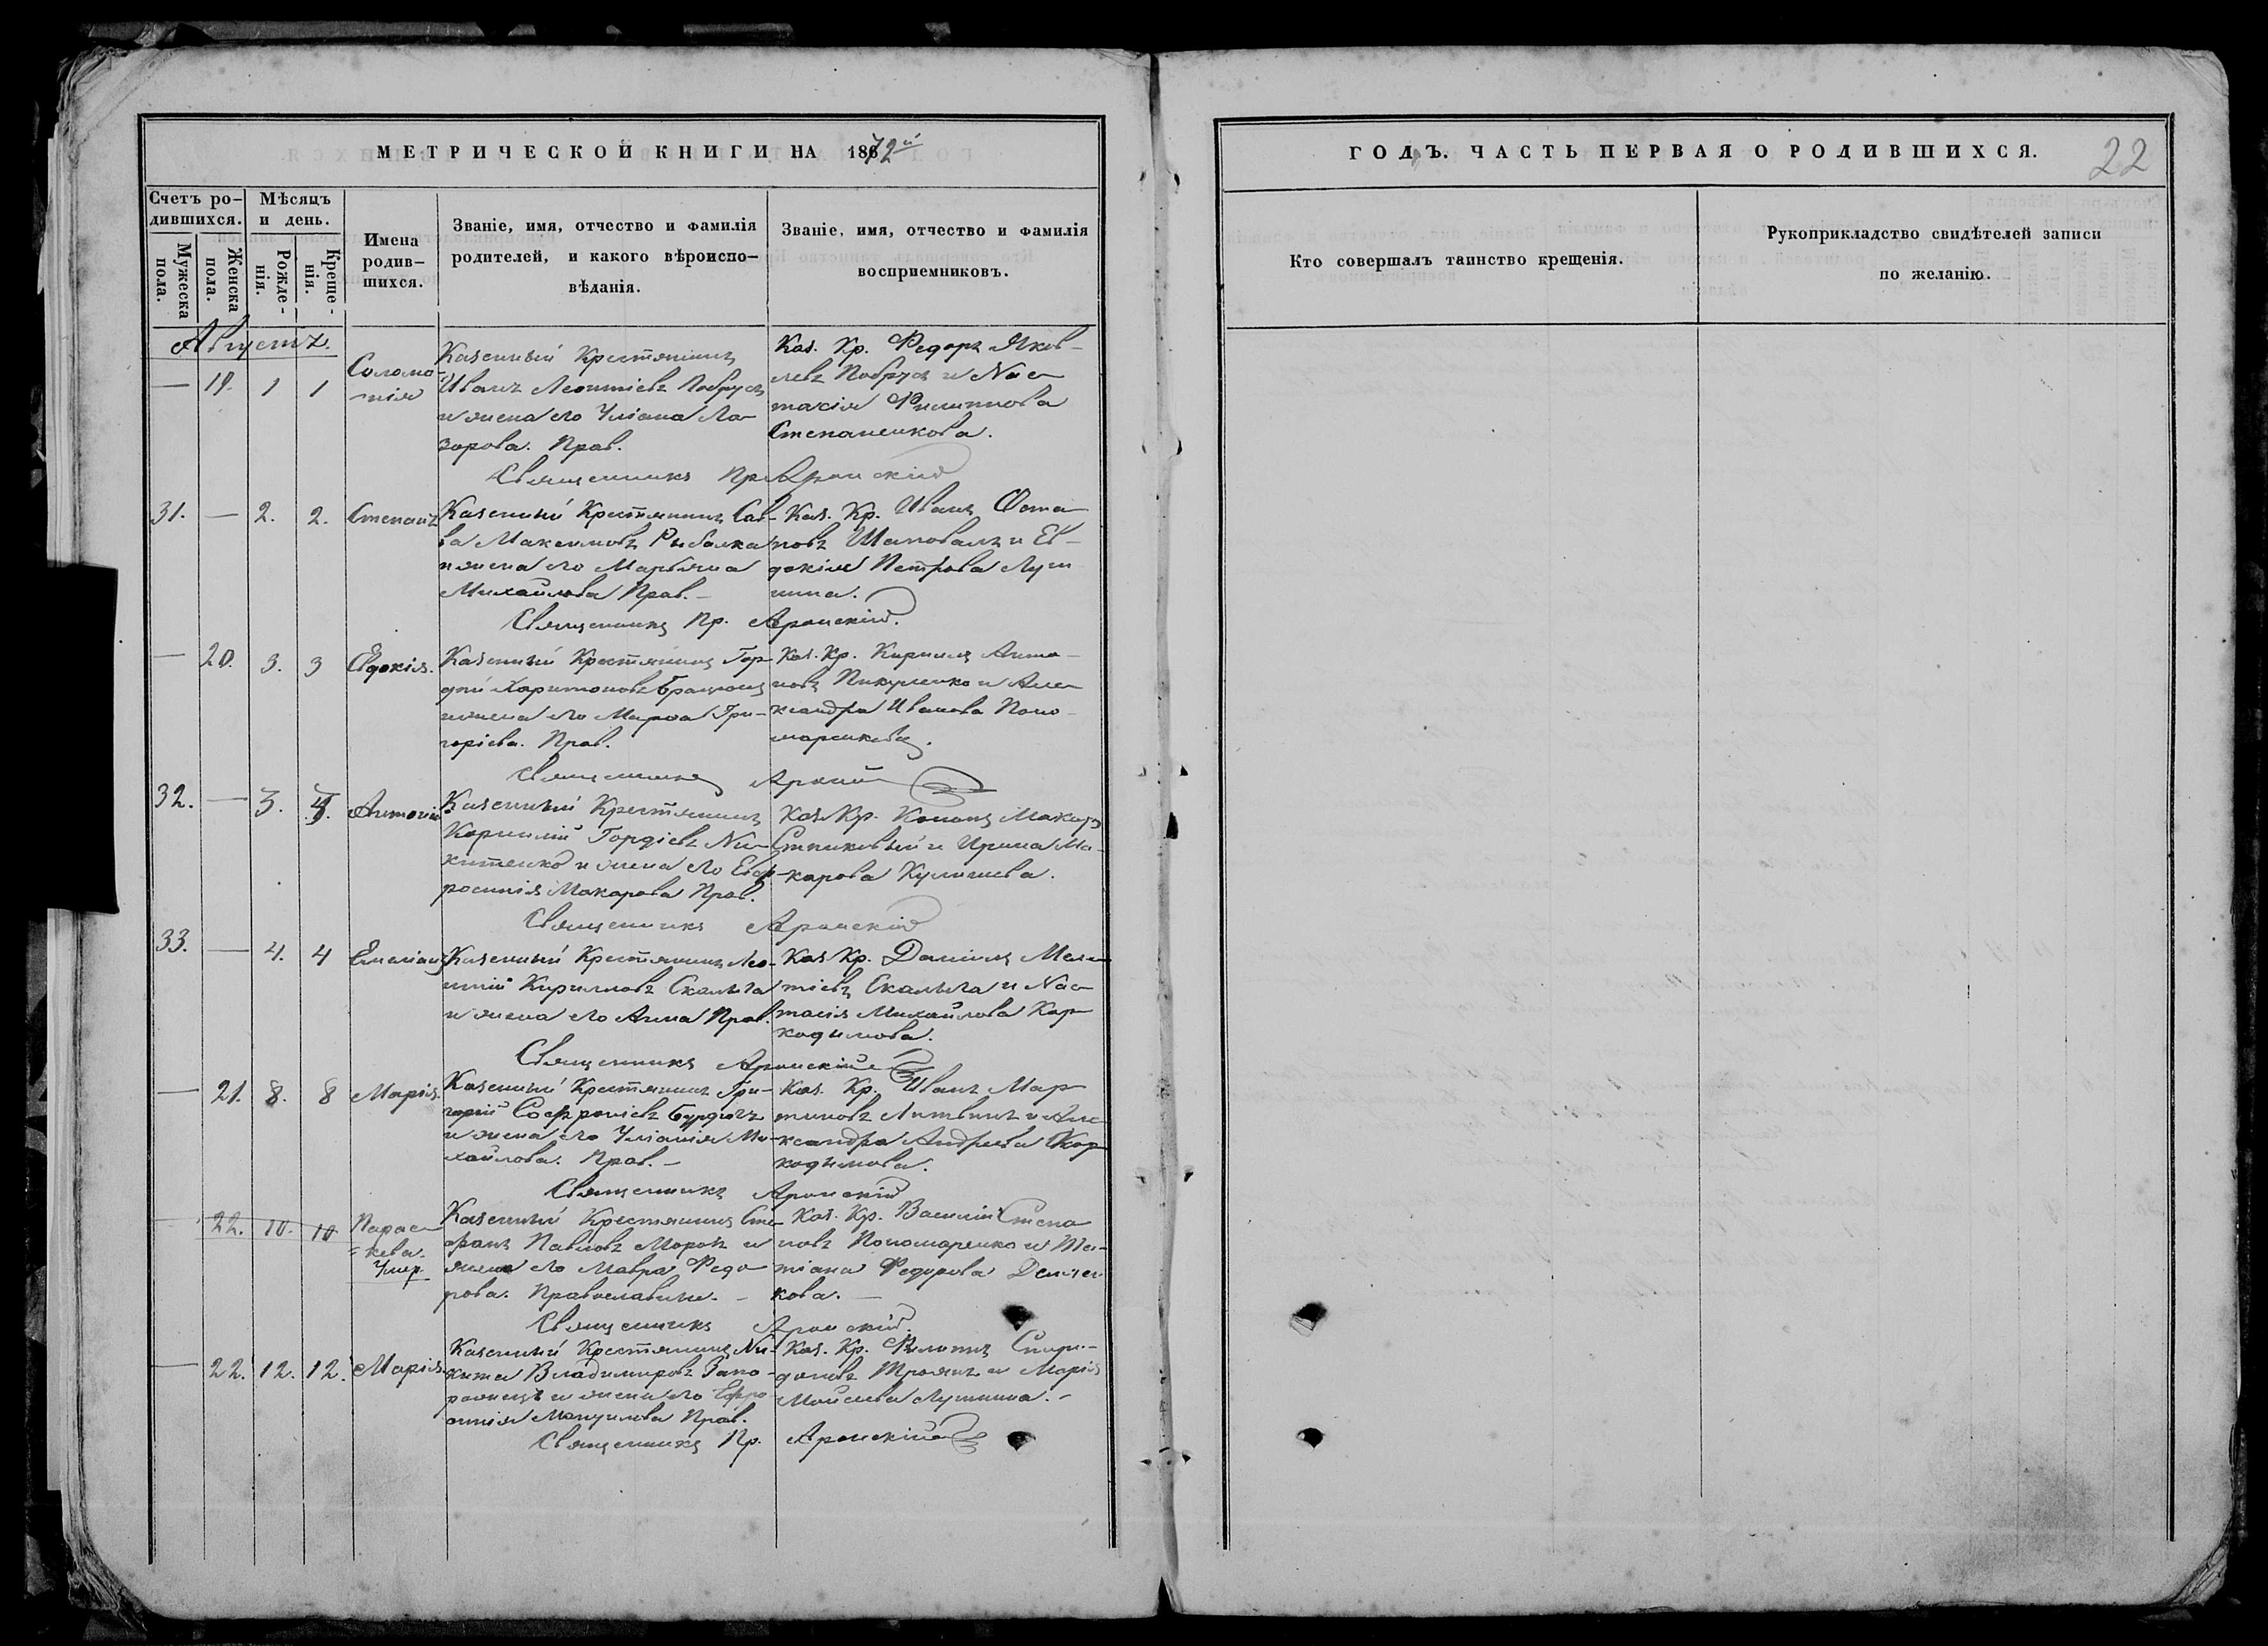 МЕТРИЧЕСКОЙ КНИГИ НА 1872й
ГОДЪ. ЧАСТЬ ПЕРВАЯ О РОДИВШИХСЯ.
22
Счетъ ро-
дившихся.
Мѣсяцъ
и день.
Мужеска
пола.
Женска
пола.
Рожде-
нія.
Креще-
нія.
Имена
родив-
шихся.
Званіе, имя, отчество и фамилія
родителей, и какого вѣроиспо-
вѣданія.
Званіе, имя, отчество и фамилія
восприемниковъ.
Кто совершалъ таинство крещенія.
Рукоприкладство свидѣтелей записи
по желанію.
Августъ.
— 19. 1 1
Соломо-
нія
Казенный Крестянинъ
Иванъ Леонтіевъ Побрусъ
и жена его Уліана Ла-
зорова. Прав.
Каз. Кр. Федоръ Яков-
левъ Побрусъ и Нас-
тасія Филиппова
Степаненкова.
Священникъ Пр. Аронскій
31. — 2. 2. Степанъ
Казенный Крестянинъ Сав-
ва Максимовъ Рыбалка
и жена его Марьяна
Михайлова Прав. —
Каз. Кр. Иванъ Оста-
повъ Шаповалъ и Ев-
докія Петрова Луш
нина.
Священникъ Пр. Аронскій.
— 20. 3. 3 Евдокія.
Казенный Крестянинъ Гор-
дей Харитоновъ
и жена его Марфа Гри-
горіева. Прав.
Каз. Кр. Кириллъ Анто-
новъ Пикуленко и Але-
ксандра Иванова Поно-
маренкова.
Священникъ
32. — 3. 4. Антоній
Казенный Крестянинъ
Корнилій Гордіевъ Ни-
китенко и жена его Евф-
росинія Макарова Прав.
Каз. Кр. Кононъ Макаръ
и Ирина Ма-
карова Кулишева.
Священникъ Аронскій
33. — 4. 4 Емеліанъ
Казенный Крестянинъ Лео-
нтій Кирилловъ Скалыга
и жена его Анна Прав.
Каз. Кр. Даніилъ Меле-
тіевъ Скалыга и Нас-
тасія Михайлова Кар
кодимова.
Священникъ Аронскій
— 21. 8. 8 Марія.
Казенный Крестянинъ Гри-
горій Софроніевъ
и жена его Уліанія Ми-
хайлова. Прав. —
Каз. Кр. Иванъ Мар
тиновъ Литвинъ и Але
ксандра Андреева Кар
кодимова.
Священникъ Аронскій
— 22. 10. 10
Парас-
кева.
Умер.
Казенный Крестянинъ Сте-
фанъ Павловъ Морозъ и
жена его Мавра Федо-
рова. Православные. —
Каз. Кр. Василій Степа
новъ Пономаренко и Та-
тіана Федорова
кова. —
Священникъ Аронскій.
— 22. 12. 12. Марія.
Казенный Крестянинъ Ни-
кита Владимировъ Запо-
рожецъ и жена его Ефро-
синія Мануилова Прав.
Каз. Кр. Филиппъ Спири-
доновъ Троянъ и Марія
Мойсеева Лушнина. —
Священникъ Пр. Аронскій